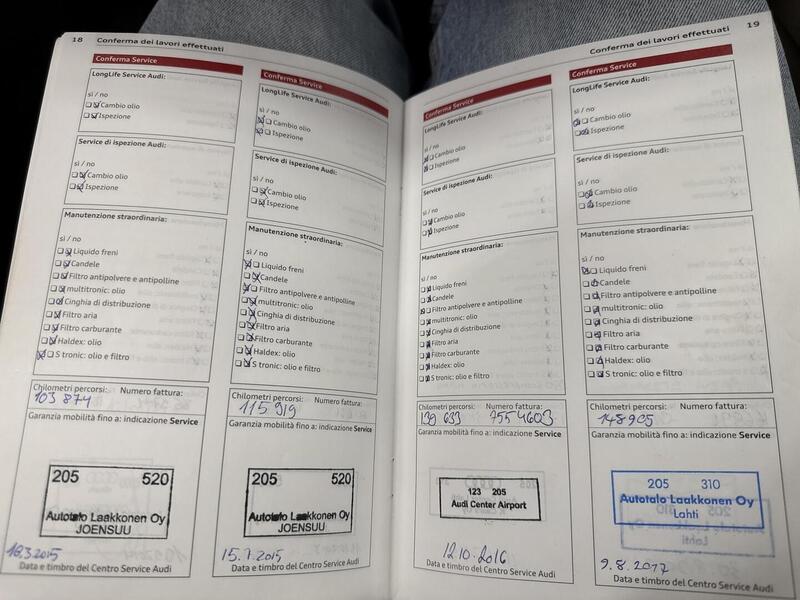 18 Conferma dei lavori effettuati
Conferma Service
LongLife Service Audi:
sì / no
Cambio olio
Ispezione
Service di ispezione Audi:
sì / no
Cambio olio
Ispezione
Manutenzione straordinaria:
sì / no
Liquido freni
Candele
Filtro antipolvere e antipolline
multitronic: olio
Cinghia di distribuzione
Filtro aria
Filtro carburante
Haldex: olio
S tronic: olio e filtro
Chilometri percorsi: Numero fattura:
103 874
Garanzia mobilità fino a: indicazione Service
205 520
Autotalo Laakkonen Oy
JOENSUU
18.3.2015
Data e timbro del Centro Service Audi
Conferma Service
LongLife Service Audi:
sì / no
Cambio olio
Ispezione
Service di ispezione Audi:
sì / no
Cambio olio
Ispezione
Manutenzione straordinaria:
sì / no
Liquido freni
Candele
Filtro antipolvere e antipolline
multitronic: olio
Cinghia di distribuzione
Filtro aria
Filtro carburante
Haldex: olio
S tronic: olio e filtro
Chilometri percorsi: Numero fattura:
115 919
Garanzia mobilità fino a: indicazione Service
205 520
Autotalo Laakkonen Oy
JOENSUU
15.7.2015
Data e timbro del Centro Service Audi
Conferma dei lavori effettuati 19
Conferma Service
LongLife Service Audi:
sì / no
Cambio olio
Ispezione
Service di ispezione Audi:
sì / no
Cambio olio
Ispezione
Manutenzione straordinaria:
sì / no
Liquido freni
Candele
Filtro antipolvere e antipolline
multitronic: olio
Cinghia di distribuzione
Filtro aria
Filtro carburante
Haldex: olio
S tronic: olio e filtro
Chilometri percorsi: Numero fattura:
139 633 7554603
Garanzia mobilità fino a: indicazione Service
123 205
Audi Center Airport
12.10.2016
Data e timbro del Centro Service Audi
Conferma Service
LongLife Service Audi:
sì / no
Cambio olio
Ispezione
Service di ispezione Audi:
sì / no
Cambio olio
Ispezione
Manutenzione straordinaria:
sì / no
Liquido freni
Candele
Filtro antipolvere e antipolline
multitronic: olio
Cinghia di distribuzione
Filtro aria
Filtro carburante
Haldex: olio
S tronic: olio e filtro
Chilometri percorsi: Numero fattura:
148905
Garanzia mobilità fino a: indicazione Service
205 310
Autotalo Laakkonen Oy
Lahti
9.8.2017
Data e timbro del Centro Service Audi